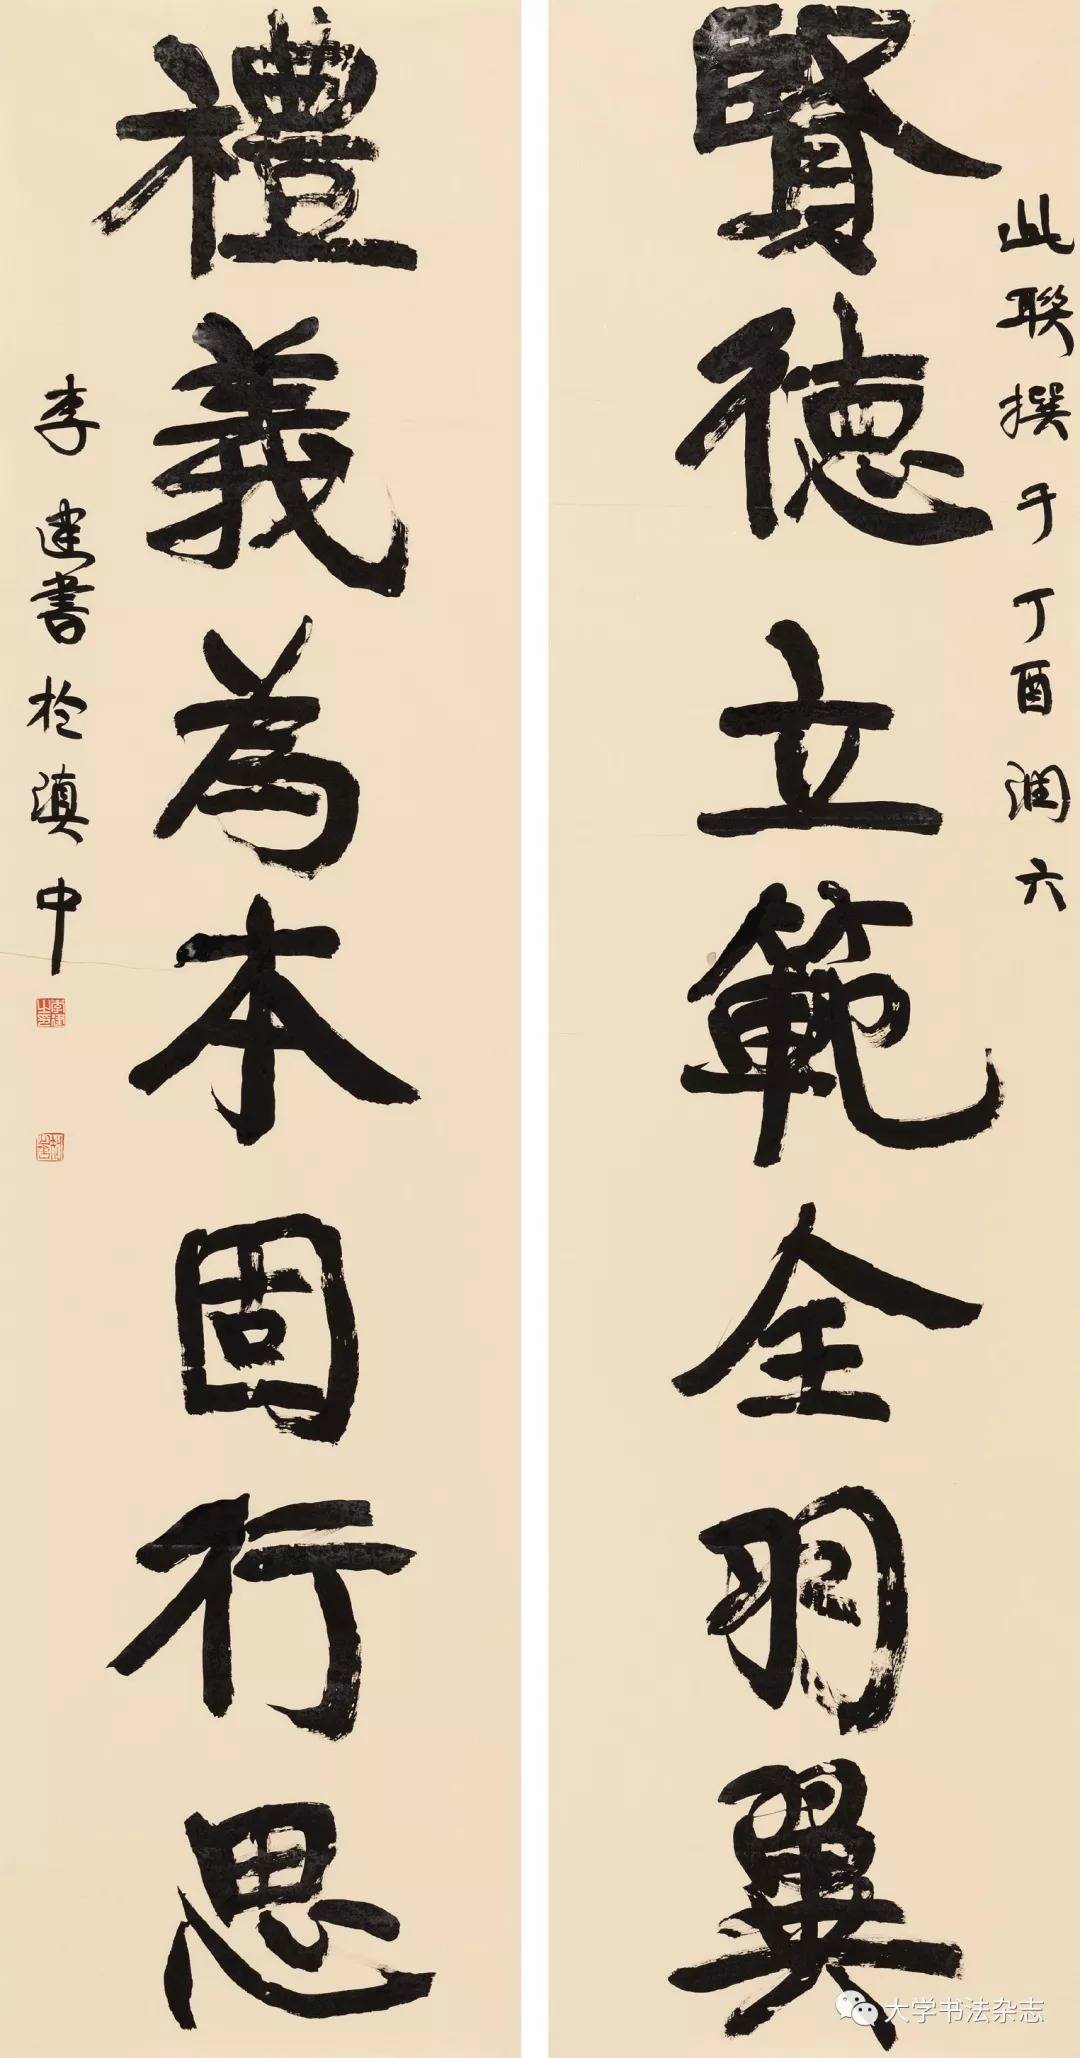 此联撰于丁酉润六
賢德立範全羽翼
禮義為本固行思
李建書於滇中
大学书法杂志